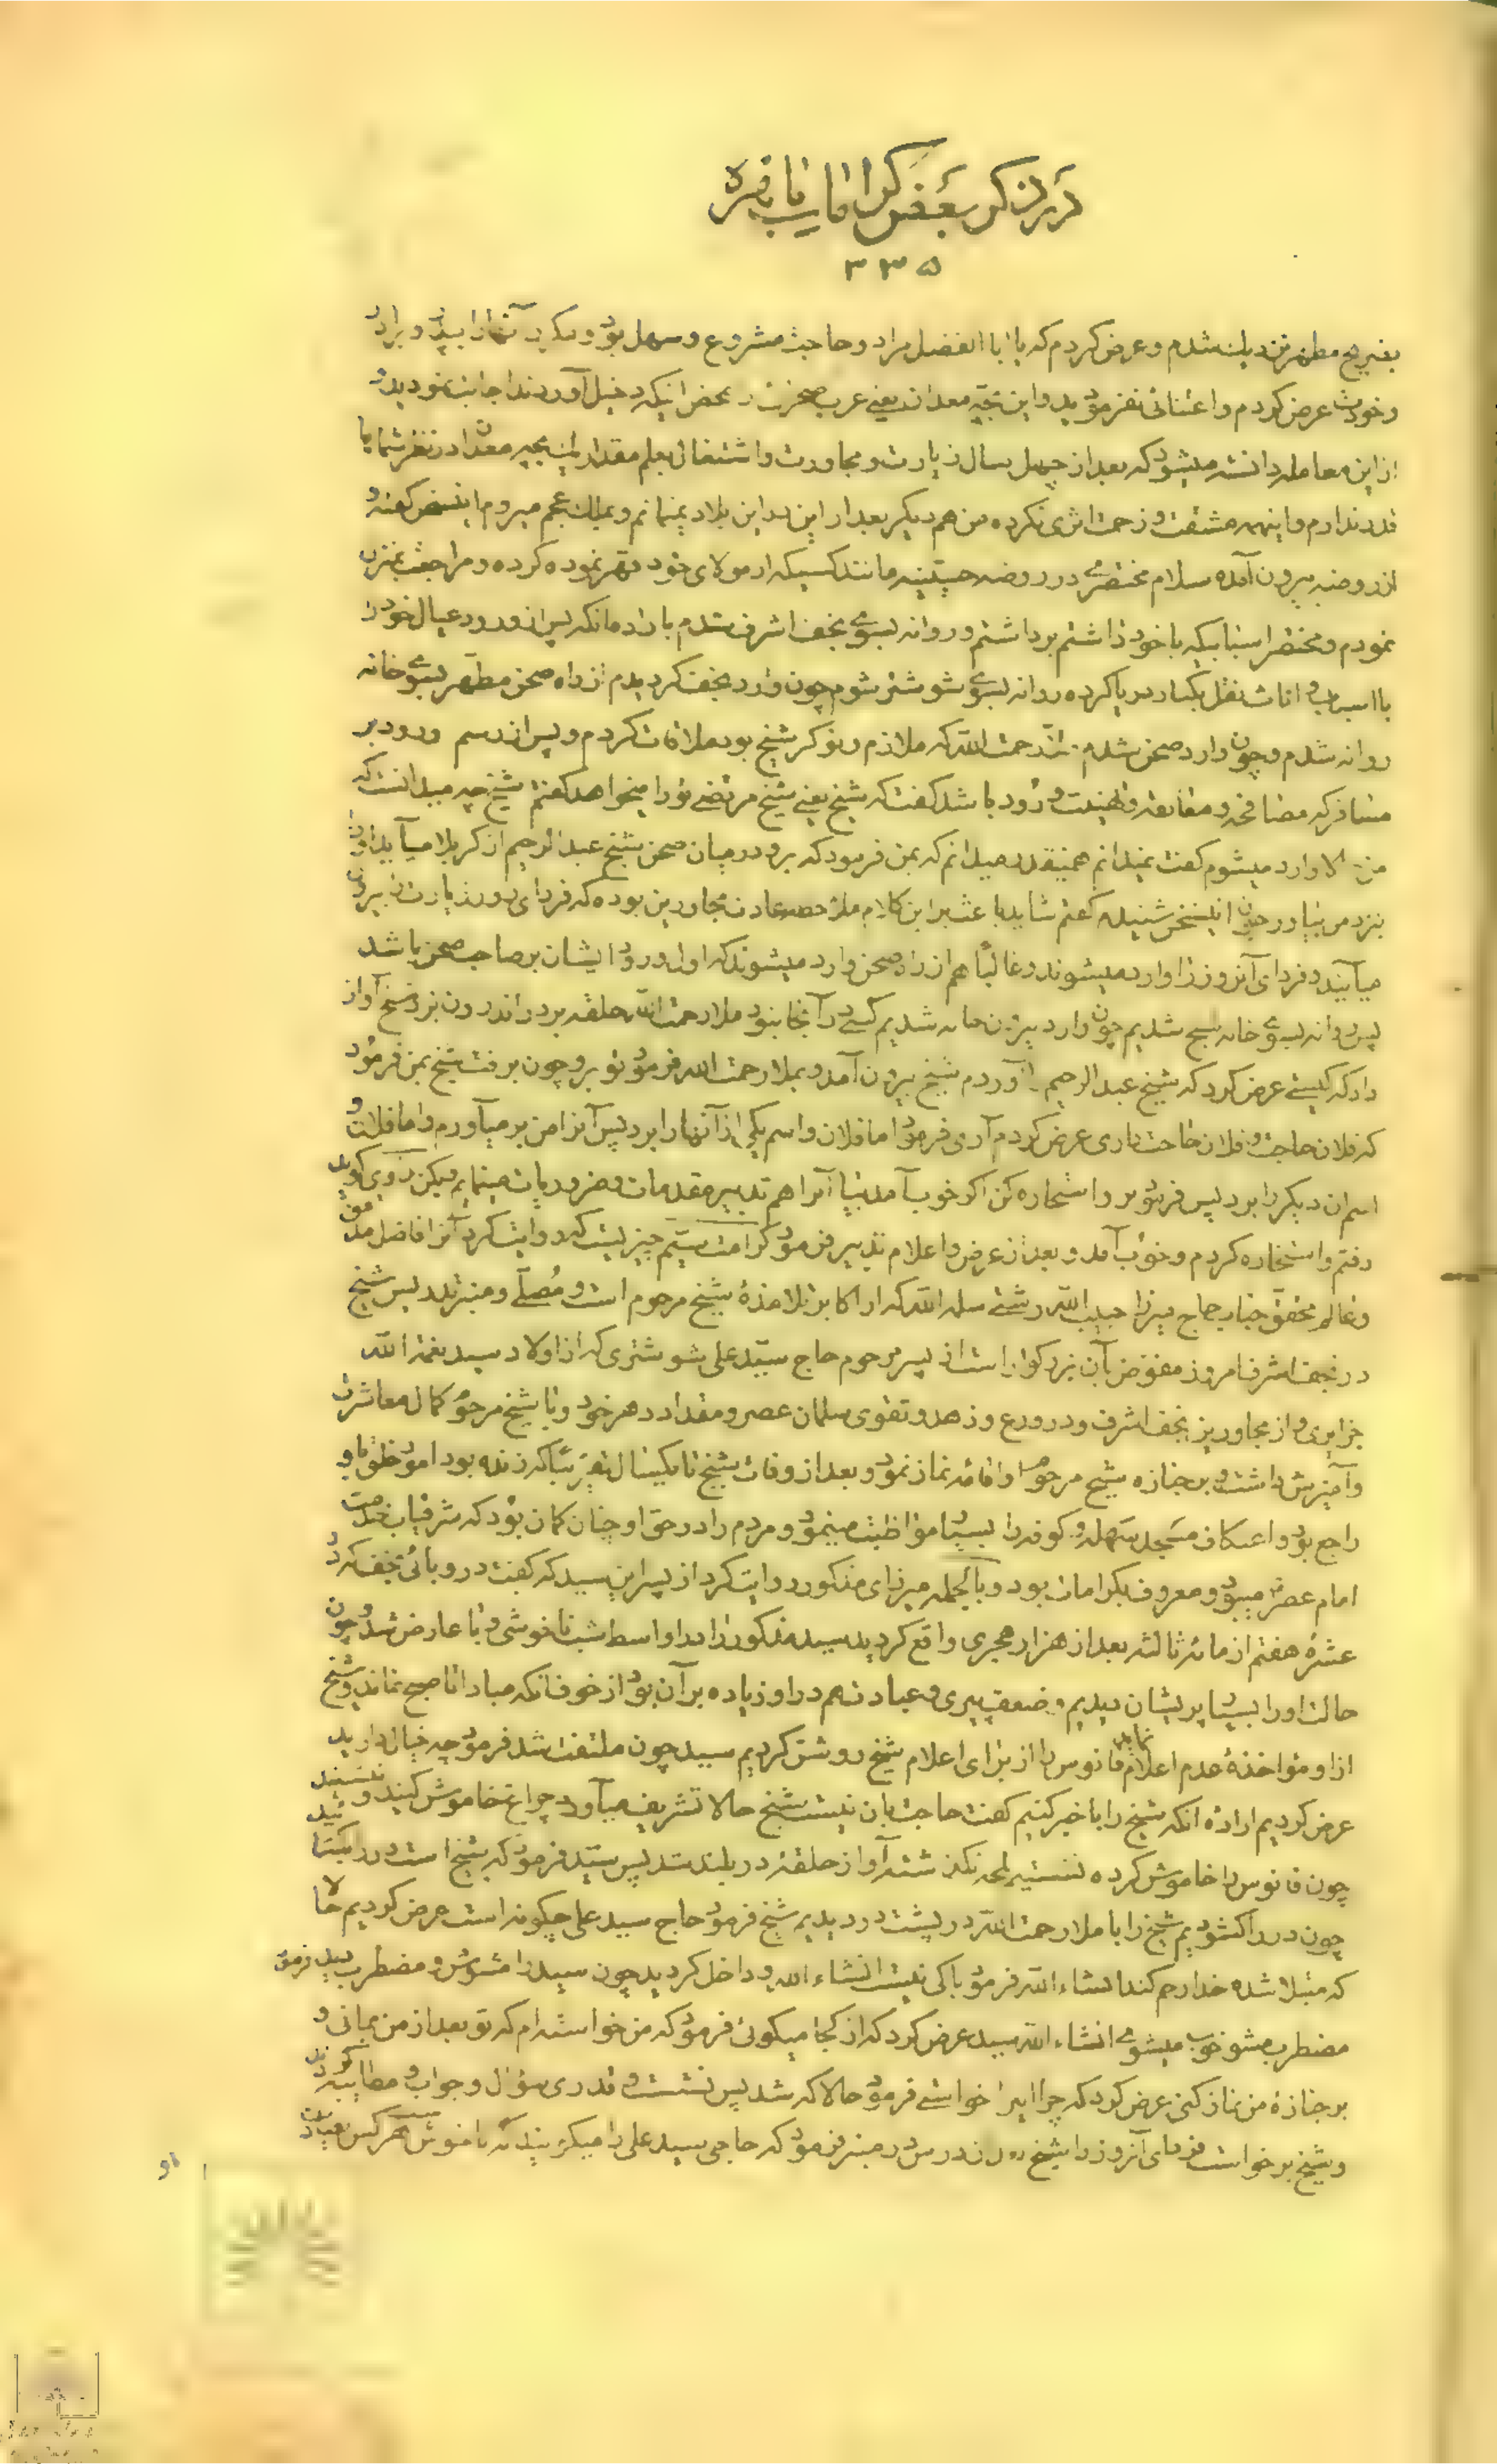 در ذکر بعض کرامات نایافزه
۳۳۵
بضریح مطهر نزدیك شدم و عرض کردم که یا ابا الفضل مراد و حاجت مشروع و سهل بود و
و خودت عرض کردم و اعتنائی نفرمودید و این بچه معدان یعنی عرب صحرت بمحض اینکه دخیل آوردند اجابت نمودید
از این معامله دانسته میشود که بعد از چهل سال زیارت و مجاورت و اشتغال بعلم مقدار این بچه معدان در نظر شما
قدر ندارم و اینهمه مشقت و زحمت اثری نکرده من هم دیگر بعد از این در این بلاد نمیمانم و ببلاد عجم میروم اینسخن گفته و
از روضه بیرون آمده سلام مختصری در روضه حسینیه مانند کسیکه از مولای خود قهر نموده کرده و مراجعت بمنزل
نمودم و مختصر اسبابیکه با خود داشتم برداشتم و روانه بسوی نجف اشرف شدم باراده آنکه پس از ورود عیال خود را
با اسباب و اثاث نقل یکبار دریا کرده روانه بسوی شوشتر شوم چون وارد نجف گردیدم از راه صحن مطهر بسوی خانه
روانه شدم و چون وارد صحن شدم ملا رحمت الله که ملازم و نوکر شیخ بود ملاقات کردم و پس از رسم ورود بر
مسافر که مصافحه و معانقه و تهنیت ورود باشد گفت که شیخ یعنی شیخ مرتضی تو را میخواهد گفتم شیخ چه میدانست که
من حالا وارد میشوم گفت نمیدانم همینقدر میدانم که بمن فرمود که برو در میان صحن شیخ عبد الرحیم از کربلا میآید او را
بنزد من بیاور چون اینسخن شنیدم گفتم شاید باعث بر این کلام ملاحظه عادت مجاورین بوده که فردای روز زیارت بیرون
میآیند و فردای آنروز را وارد میشوند و غالبًا هم از راه صحن وارد میشوند که اول ورود ایشان بر صاحب صحن باشد
پس روانه بسوی خانه شیخ شدیم چون وارد بیرون خانه شدیم کسی در آنجا نبود ملا رحمت الله حلقه بر در اندرون نزد شیخ آواز
داد که کیستی عرض کرد که شیخ عبد الرحیم را آوردم شیخ بیرون آمد و بملا رحمت الله فرمود تو برو چون برفت شیخ بمن فرمود
که فلان حاجت و فلان حاجت داری عرض کردم آری فرمود اما فلان و اسم یکی از آنها را برد پس آنرا من بر میآورم و اما فلان و
اسم ان دیگر را برد پس فرمود برو استخاره کن اگر خوب آمد بیا آنرا هم تدبیر مقدمات و ضروریات مینمایم
رفتم و استخاره کردم و خوب آمد و بعد از عرض و اعلام تدبیر فرمود
و عالم محقق جناب حاج میرزا حبیب الله رشتی سلمه الله که از اکابر تلامذهٔ شیخ مرحوم است و مصلّی و منبر تدریس شیخ
در نجف اشرف امروز مفوّض بآن بزرگوار است از پسر مرحوم حاج سیّد علی شوشتری که از اولاد سید نعمة الله
جزایری و از مجاورین نجف اشرف و در ورع و زهد و تقوی سلمان عصر و مقداد دهر خود و با شیخ مرحوم کمال معاشرت
و آمیزش داشت و بر جنازه شیخ مرحوم او اقامهٔ نماز نمود و بعد از وفات شیخ تا یکسال تقریبًا که زنده بود امور خلق باو
راجع بود و اعتکاف مسجد سهله و کوفه را بسیار مواظبت مینمود و مردم را در حق او چنان گمان بود که شرفیاب خدمت
امام عصر میبود و معروف بکرامات بود و بالجمله میرزای مذکور روایت کرد از پسر این سید که گفت در وبائی نجف که در
عشرهٔ هفتم از مائه ثالثه بعد از هزار هجری واقع گردید سید مذکور را در اواسط شب ناخوشی وبا عارض شد و چون
حالت او را بسیار پریشان دیدیم و ضعف پیری و عبادت هم در او زیاده بر آن بود از خوف انکه مبادا تا صبح نماند و شیخ
از او مؤاخذهٔ عدم اعلام نماید فانوس را از برای اعلام شیخ روشن کردیم سید چون ملتفت شد فرمود چه خیال دارید
عرض کردیم ارادهٔ انکه شیخ را با خبر کنیم گفت حاجت بان نیست شیخ حالا تشریف میآورد چراغ خاموش کنید و بنشینید
چون فانوس را خاموش کرده نشستیم لمحهٔ نگذشته آواز حلقهٔ در بلند شد پس سیّد فرمود که شیخ است در را
چون در را گشودیم شیخ را با ملا رحمت الله در پشت در دیدیم شیخ فرمود حاج سید علی چگونه است عرض کردیم حالا
که مبتلا شده خدا رحم کند انشاء الله فرمود باکی نیست انشاء الله و داخل گردید چون سید را مشوّش و مضطرب دید فرمود
مضطرب مشو خوب میشوی انشاء الله سید عرض کرد که از کجا میگوئی فرمود که من خواسته‌ام که تو بعد از من بمانی و
بر جنازهٔ من نماز کنی عرض کرد که چرا اینرا خواستی فرمود حالا که شد پس نشست و قدری سؤال و جواب و مطایبه
و شیخ برخواست فردای آنروز را شیخ در درس در منبر فرمود که حاجی سید علی را میگویند که ناخوش هر کس
او